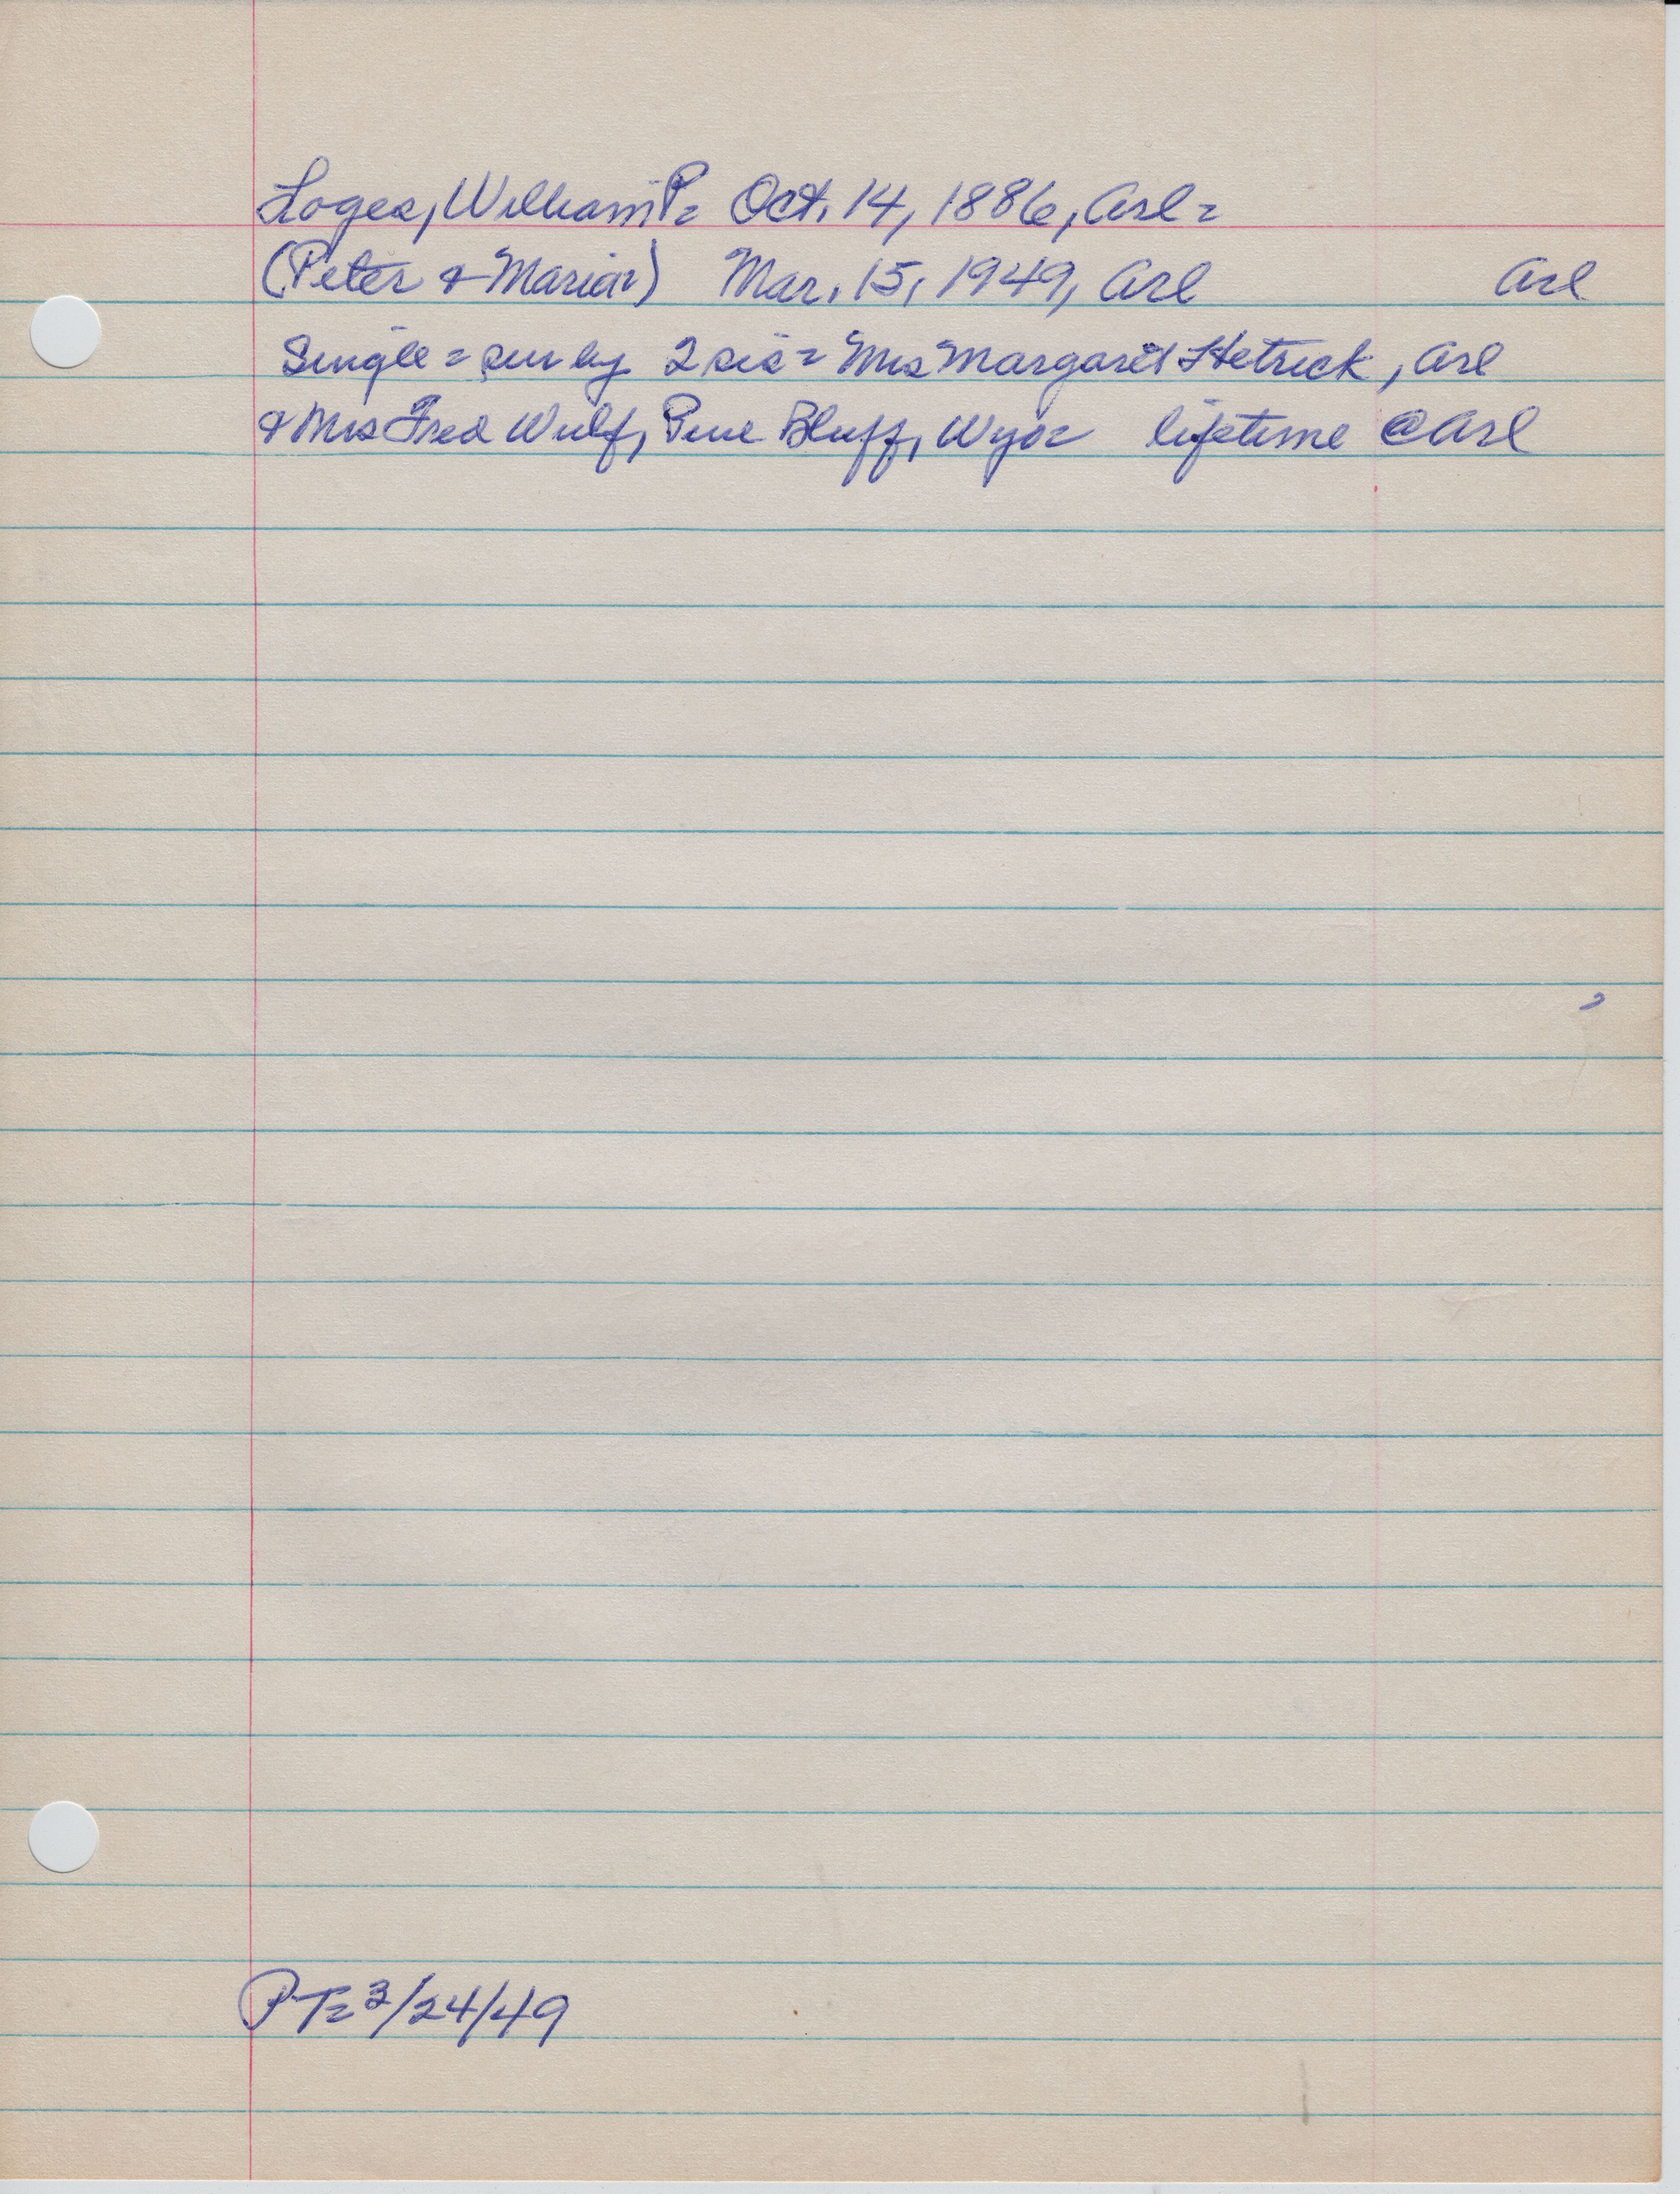 Loges, William P= Oct. 14, 1886, Arl=
(Peter & Maria=) Mar. 15, 1949, Arl Arl
Single = sur by 2 sis = Mrs Margaret Hetrick, Arl
& Mrs Fred Wulf, Pine Bluff, Wyo= lifetime @ Arl
PT= 3/24/49